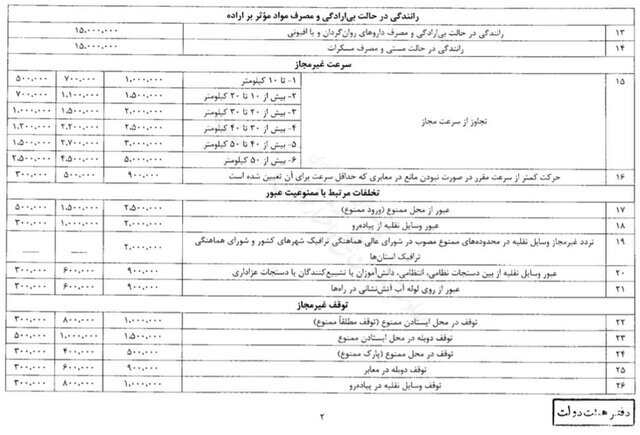 رانندگی در حالت بی‌ارادگی و مصرف مواد مؤثر بر اراده
۱۳ رانندگی در حالت بی‌ارادگی و مصرف داروهای روان‌گردان و یا افیونی ۱۵.۰۰۰.۰۰۰
۱۴ رانندگی در حالت مستی و مصرف مسکرات ۱۵.۰۰۰.۰۰۰
سرعت غیرمجاز
۱۵ تجاوز از سرعت مجاز
۱- تا ۱۰ کیلومتر ۱.۰۰۰.۰۰۰ ۷۰۰.۰۰۰ ۵۰۰.۰۰۰
۲- بیش از ۱۰ تا ۲۰ کیلومتر ۱.۵۰۰.۰۰۰ ۱.۱۰۰.۰۰۰ ۷۰۰.۰۰۰
۳- بیش از ۲۰ تا ۳۰ کیلومتر ۲.۰۰۰.۰۰۰ ۱.۵۰۰.۰۰۰ ۱.۰۰۰.۰۰۰
۴- بیش از ۳۰ تا ۴۰ کیلومتر ۲.۵۰۰.۰۰۰ ۲.۲۰۰.۰۰۰ ۱.۲۰۰.۰۰۰
۵- بیش از ۴۰ تا ۵۰ کیلومتر ۳.۰۰۰.۰۰۰ ۲.۷۰۰.۰۰۰ ۱.۵۰۰.۰۰۰
۶- بیش از ۵۰ کیلومتر ۵.۰۰۰.۰۰۰ ۴.۵۰۰.۰۰۰ ۲.۵۰۰.۰۰۰
۱۶ حرکت کمتر از سرعت مقرر در صورت نبودن مانع در معابری که حداقل سرعت برای آن تعیین شده است ۹۰۰.۰۰۰ ۵۰۰.۰۰۰ ۳۰۰.۰۰۰
تخلفات مرتبط با ممنوعیت عبور
۱۷ عبور از محل ممنوع (ورود ممنوع) ۲.۵۰۰.۰۰۰ ۱.۵۰۰.۰۰۰ ۵۰۰.۰۰۰
۱۸ عبور وسایل نقلیه از پیاده‌رو ۲.۰۰۰.۰۰۰ ۱.۰۰۰.۰۰۰ ۳۰۰.۰۰۰
۱۹ تردد غیرمجاز وسایل نقلیه در محدوده‌های ممنوع مصوب در شورای عالی هماهنگی ترافیک شهرهای کشور و شورای هماهنگی ۲.۰۰۰.۰۰۰ — —
ترافیک استان‌ها
۲۰ عبور وسایل نقلیه از بین دستجات نظامی، انتظامی، دانش‌آموزان یا تشییع‌کنندگان یا دستجات عزاداری ۹۰۰.۰۰۰ ۶۰۰.۰۰۰ ۳۰۰.۰۰۰
۲۱ عبور از روی لوله آب آتش‌نشانی در راه‌ها ۹۰۰.۰۰۰ ۶۰۰.۰۰۰ ۳۰۰.۰۰۰
توقف غیرمجاز
۲۲ توقف در محل ایستادن ممنوع (توقف مطلقاً ممنوع) ۱.۰۰۰.۰۰۰ ۸۰۰.۰۰۰ ۳۰۰.۰۰۰
۲۳ توقف دوبله در محل ایستادن ممنوع ۱.۵۰۰.۰۰۰ ۱.۰۰۰.۰۰۰ ۵۰۰.۰۰۰
۲۴ توقف در محل ممنوع (پارک ممنوع) ۵۰۰.۰۰۰ ۴۰۰.۰۰۰ ۳۰۰.۰۰۰
۲۵ توقف دوبله در معابر ۹۰۰.۰۰۰ ۶۰۰.۰۰۰ ۳۰۰.۰۰۰
۲۶ توقف وسایل نقلیه در پیاده‌رو ۱.۰۰۰.۰۰۰ ۸۰۰.۰۰۰ ۳۰۰.۰۰۰
۲
دفتر هیئت دولت